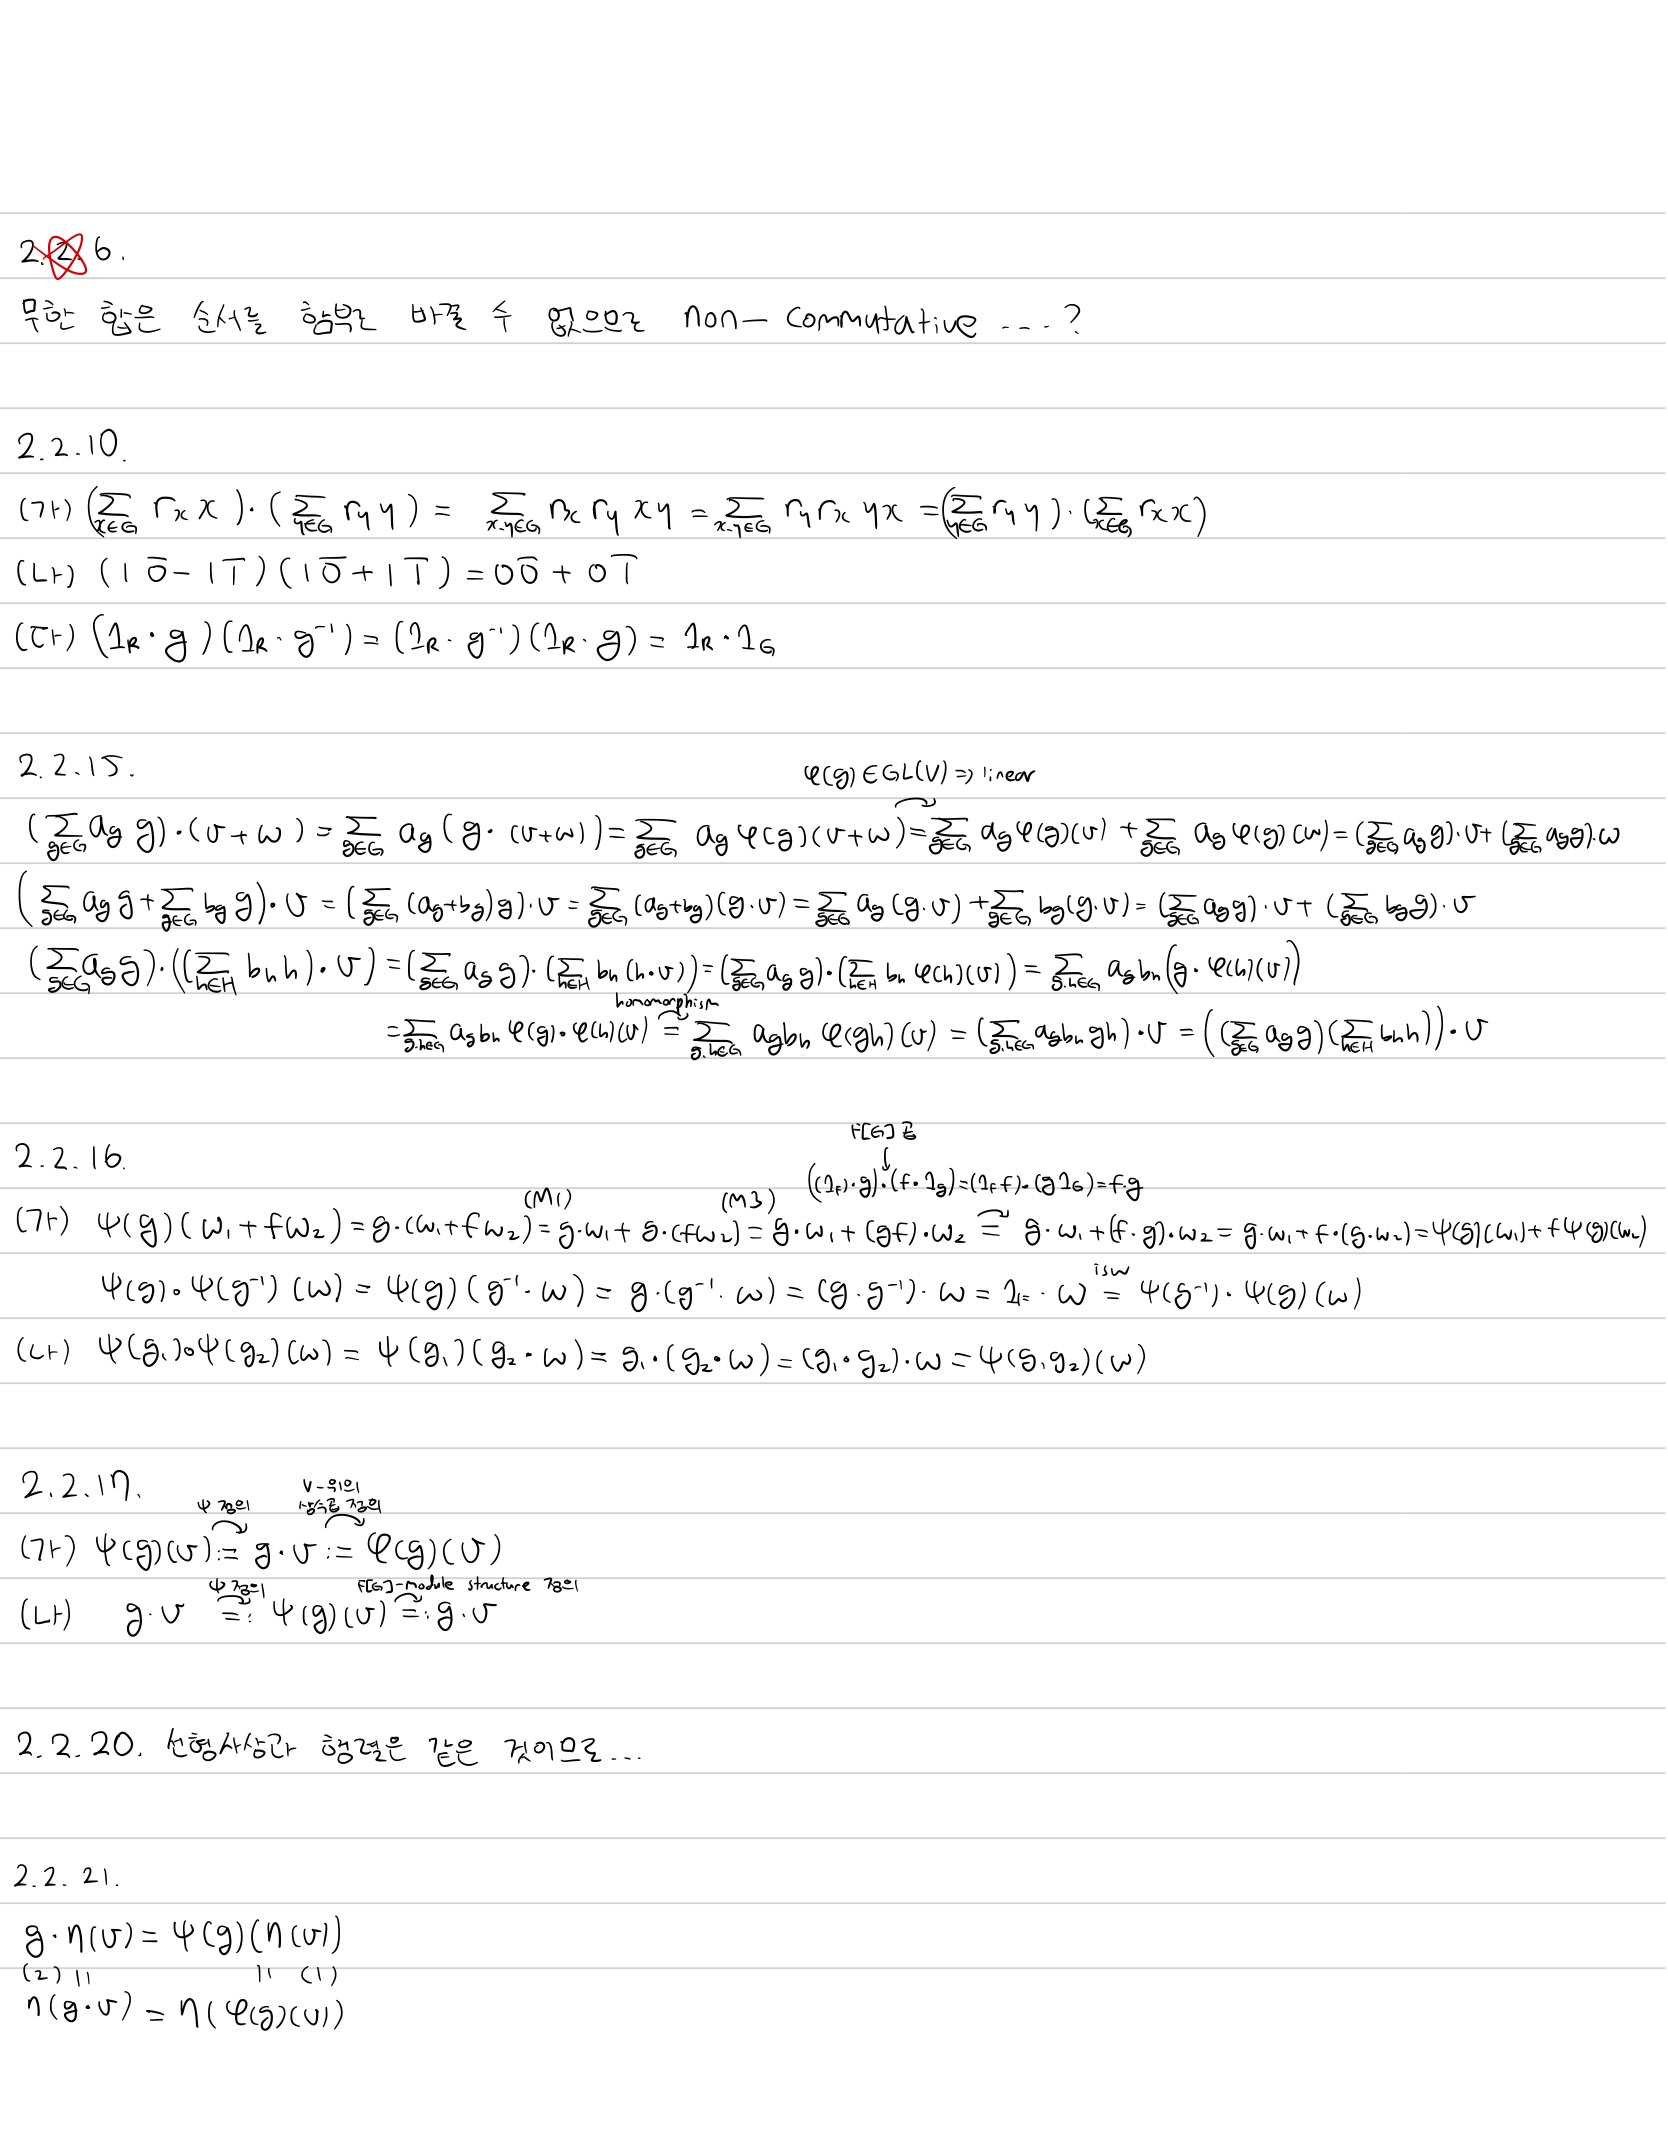 2.2.6.
무한 합은 순서를 함부로 바꿀 수 없으므로 non-commutative ....?
2.2.10.
(가) (∑_{x∈G} r_x x)·(∑_{y∈G} r_y y) = ∑_{x,y∈G} r_x r_y xy = ∑_{x,y∈G} r_y r_x yx = (∑_{y∈G} r_y y)·(∑_{x∈G} r_x x)
(나) (1 0̅ - 1 1̅)(1 0̅ + 1 1̅) = 0 0̅ + 0 1̅
(다) (1_R · g)(1_R · g⁻¹) = (1_R · g⁻¹)(1_R · g) = 1_R · 1_G
2.2.15.
φ(g) ∈ GL(V) ⇒ linear
(∑_{g∈G} a_g g)·(v+w) = ∑_{g∈G} a_g (g·(v+w)) = ∑_{g∈G} a_g φ(g)(v+w) = ∑_{g∈G} a_g φ(g)(v) + ∑_{g∈G} a_g φ(g)(w) = (∑_{g∈G} a_g g)·v + (∑_{g∈G} a_g g)·w
(∑_{g∈G} a_g g + ∑_{g∈G} b_g g)·v = (∑_{g∈G} (a_g+b_g)g)·v = ∑_{g∈G} (a_g+b_g)(g·v) = ∑_{g∈G} a_g (g·v) + ∑_{g∈G} b_g(g·v) = (∑_{g∈G} a_g g)·v + (∑_{g∈G} b_g g)·v
(∑_{g∈G} a_g g)·((∑_{h∈H} b_h h)·v) = (∑_{g∈G} a_g g)·(∑_{h∈H} b_h (h·v)) = (∑_{g∈G} a_g g)·(∑_{h∈H} b_h φ(h)(v)) = ∑_{g,h∈G} a_g b_h (g·φ(h)(v))
homomorphism
= ∑_{g,h∈G} a_g b_h φ(g)∘φ(h)(v) = ∑_{g,h∈G} a_g b_h φ(gh)(v) = (∑_{g,h∈G} a_g b_h gh)·v = ((∑_{g∈G} a_g g)(∑_{h∈H} b_h h))·v
F[G] 곱
↓
2.2.16.
((1_F)·g)·(f·1_g) = (1_F f)·(g 1_G) = f·g
(M1) (M3)
(가) ψ(g)(w₁+fw₂) = g·(w₁+fw₂) = g·w₁ + g·(fw₂) = g·w₁ + (gf)·w₂ = g·w₁ + (f·g)·w₂ = g·w₁ + f·(g·w₂) = ψ(g)(w₁) + fψ(g)(w₂)
ψ(g)∘ψ(g⁻¹)(w) = ψ(g)(g⁻¹·w) = g·(g⁻¹·w) = (g·g⁻¹)·w = 1_F·w = ψ(g⁻¹)·ψ(g)(w)
(나) ψ(g₁)∘ψ(g₂)(w) = ψ(g₁)(g₂·w) = g₁·(g₂·w) = (g₁·g₂)·w = ψ(g₁g₂)(w)
2.2.17.
ψ 정의 V-위의 상수곱 정의
(가) ψ(g)(v) := g·v := φ(g)(v)
ψ 정의 F[G]-module structure 정의
(나) g·v =: ψ(g)(v) =: g·v
2.2.20. 선형사상과 행렬은 같은 것이므로...
2.2.21.
g·η(v) = ψ(g)(η(v))
(2) || || (1)
η(g·v) = η(φ(g)(v))